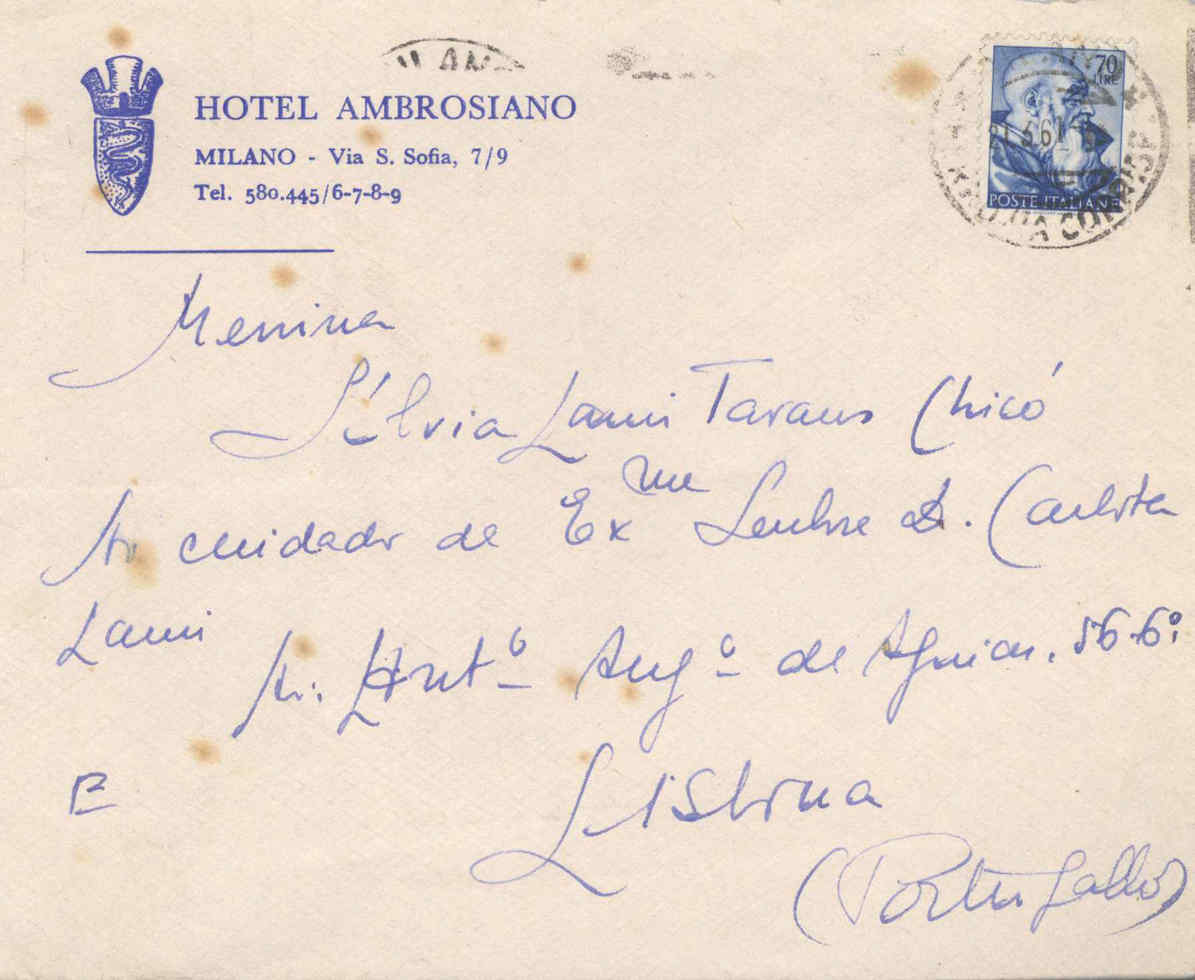 HOTEL AMBROSIANO
MILANO - Via S. Sofia, 7/9
Tel. 580.445/6-7-8-9
70
LIRE
POSTE ITALIANE
Menina
Sílvia Lami Tavares Chicó
Ao cuidado da Exma Senhora D. Carlota
Lami
Av. Antº Augº de Aguiar. 56-6º.
Lisboa
(Portugallo)